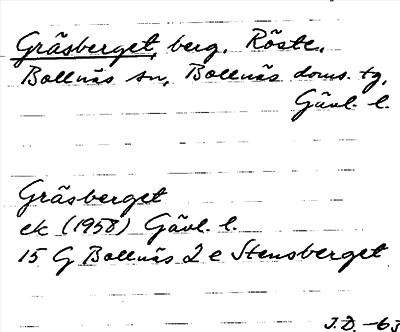 Gräsberget, berg, Röste,
Bollnäs sn, Bollnäs doms. tg,
Gävl. l.
Gräsberget
ek (1958) Gävl. l.
15 G Bollnäs 2 e Stensberget
J.D. -63